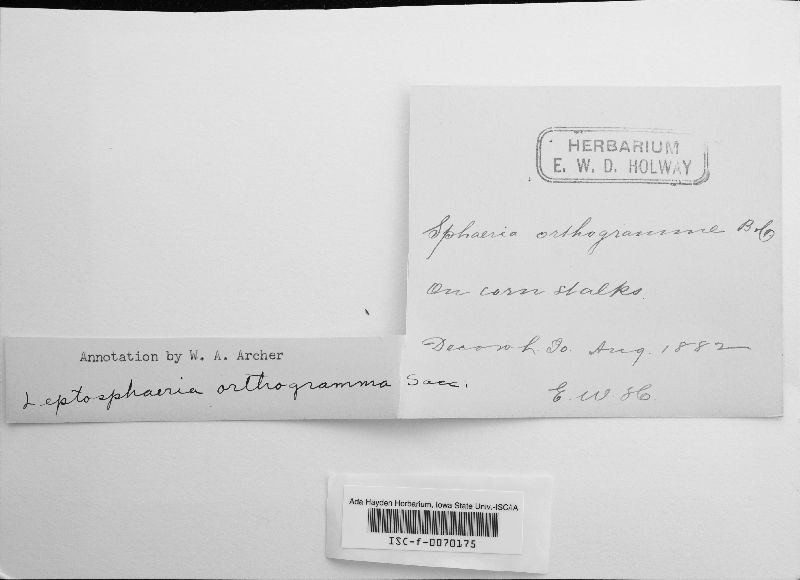 HERBARIUM
E. W. D. HOLWAY
Sphaeria orthogramme B&C
On corn stalks.
Decorah. Io. Aug. 1882
E. W. H.
Annotation by W. A. Archer
Leptosphaeria orthogramma Sacc.
Ada Hayden Herbarium, Iowa State Univ.-ISC/IA
ISC-f-0070175